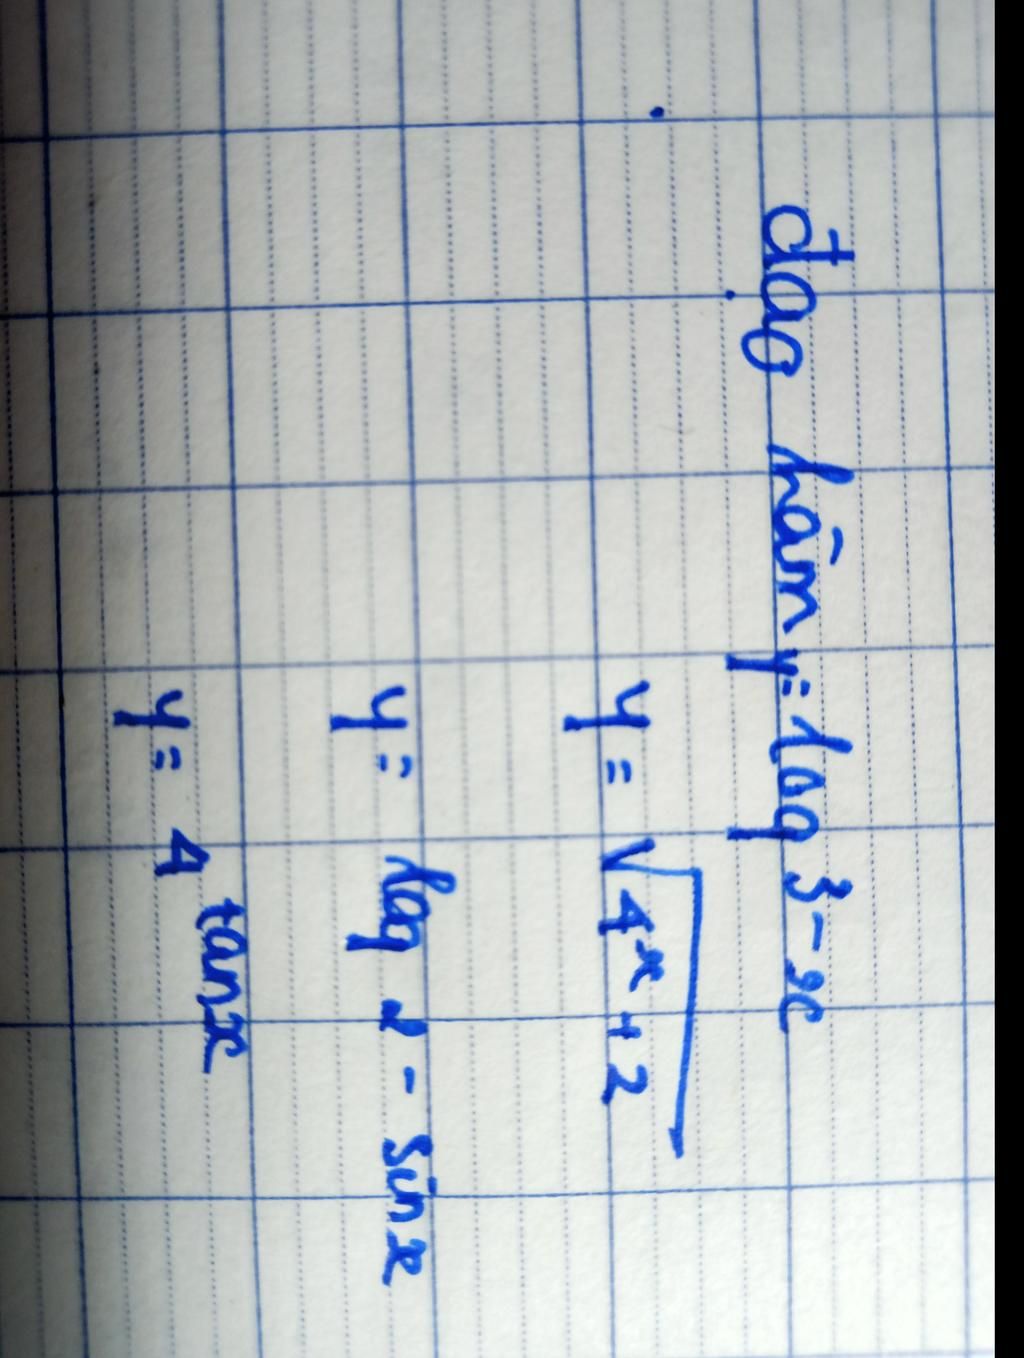 đạo hàm y = log 3 - x
y = √4^x + 2
y = log x - sin x
y = 4^tan x